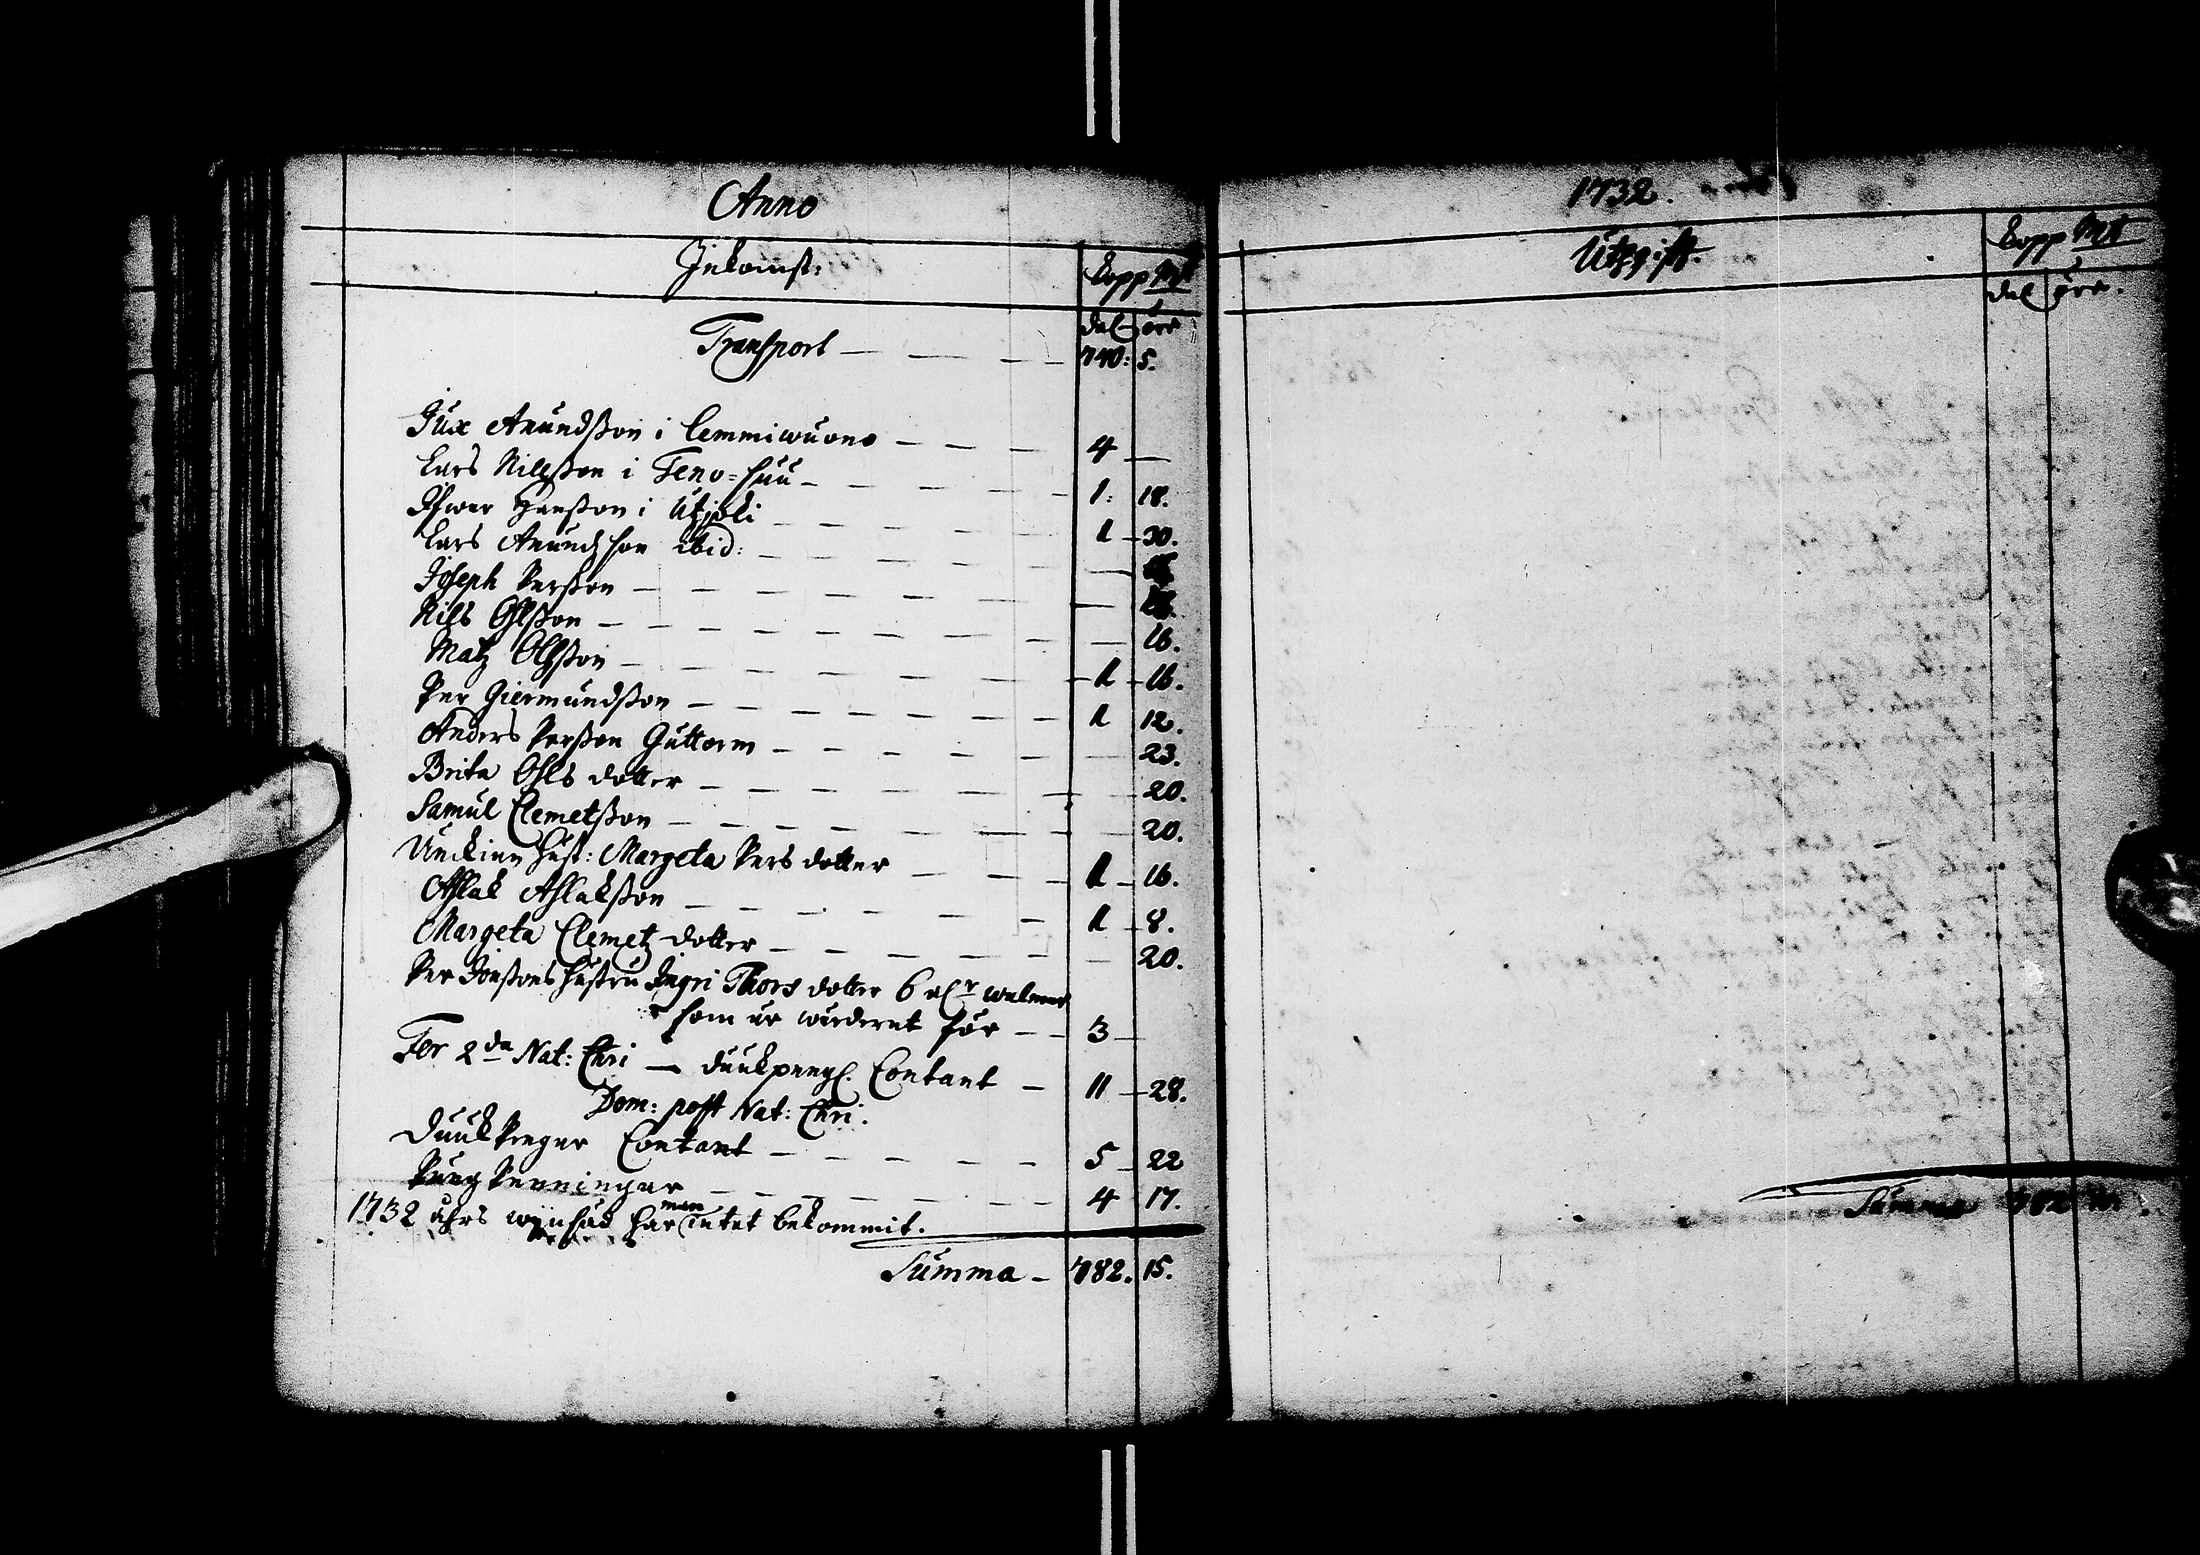 Anno
Inkomst:
Kopp Mt
dal öre
Transport — — — — 740: 5.
Jux Anundsson i Lemmiwuono — — — 4 —
Lars Nilsson i Teno=suu — — — — 1: 18.
Ifwar Hansson i Utzjoki — — — — 1 — 30.
Lars Anundsson ibid: — — — —
Joseph Persson — — — —
Nils Ohlsson — — — — — 16.
Matz Olsson — — — — 1 — 16.
Per Giermundsson — — — — 1 12.
Anders Persson Guttorm — — — — 23.
Brita Ohls dotter — — — — 20.
Samul Clemetsson — — — — 20.
Enckian hust: Margeta Pers dotter — — — 1 — 16.
Aslak Aslaksson — — — — 1 — 8.
Margeta Clemetz dotter — — — — 20.
Per Jonssons hustru Ingri Thors dotter 6 alr walmar
som är wärderat för — — 3 —
Fer 2da Nat: Chri — Contant — 11 — 28.
Dom: post Nat: Chri.
Contant — — — — 5 — 22
Pung Penningar — — — — 4 17.
1732 åhrs har man intet bekommit.
Summa — 782. 15.
1732.
Utgift.
Kopp Mt
dal öre.
Summa 782